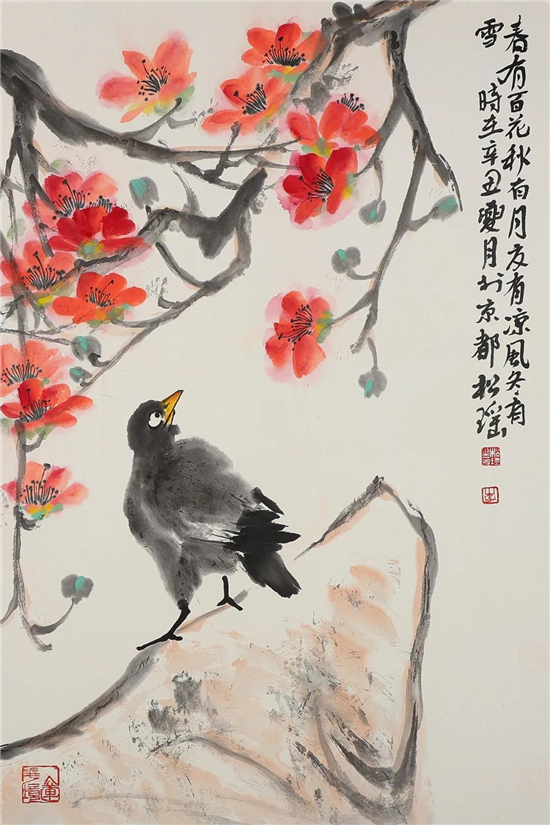 春有百花秋有月夏有凉風冬有
雪
時在辛丑夏月於京都松瑶